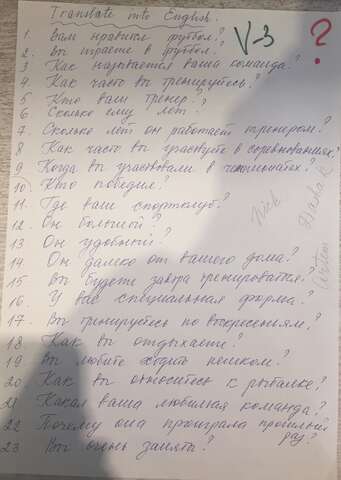 Translate into English.
V-3
?
1. Вам нравится футбол?
2. Вы играете в футбол?
3 Как называется ваша команда?
4. Как часто вы тренируетесь?
5 Кто ваш тренер?
6 Сколько ему лет?
7. Сколько лет он работает тренером?
8 Как часто вы участвуете в соревнованиях?
9 Когда вы участвовали в чемпионатах?
10. Кто победил?
11. Где ваш спортклуб?
12. Он большой?
13 Он удобный?
14 Он далеко от вашего дома?
15 Вы будете завтра тренироваться?
16. У вас специальная форма?
17. Вы тренируетесь по воскресениям?
18 Как вы отдыхаете?
19 Вы любите ходить пешком?
20 Как вы относитесь к рыбалке?
21 Какая ваша любимая команда?
22 Почему она проиграла прошлый раз?
23 Вы очень заняты?
Nick
Artem